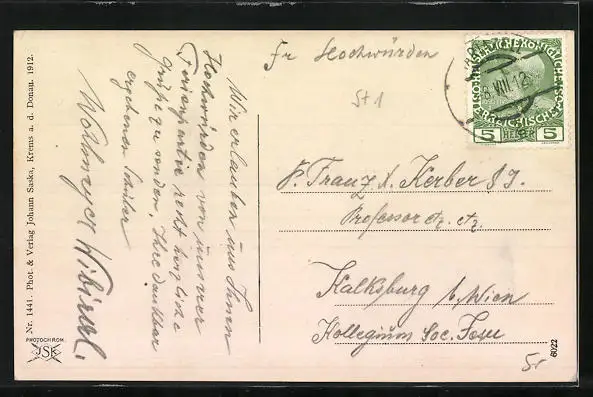 Nr. 1441. Phot. & Verlag Johann Saska, Krems a. d. Donau. 1912.
PHOTOCHROM.
JSK
Wir erlauben uns Ihnen
Hochwürden von unserer
Ferienpartie recht herzliche
Grüße zu senden. Ihre dankbar
ergebenen Schüler
Wohlmeyer
Fr Hochwürden
St 1
P. Franz X. Kerber S. J.
Professor etc. etc.
Kalksburg b. Wien
Kollegium Soc. Jesu
VII 12
5 HELLER 5
6022